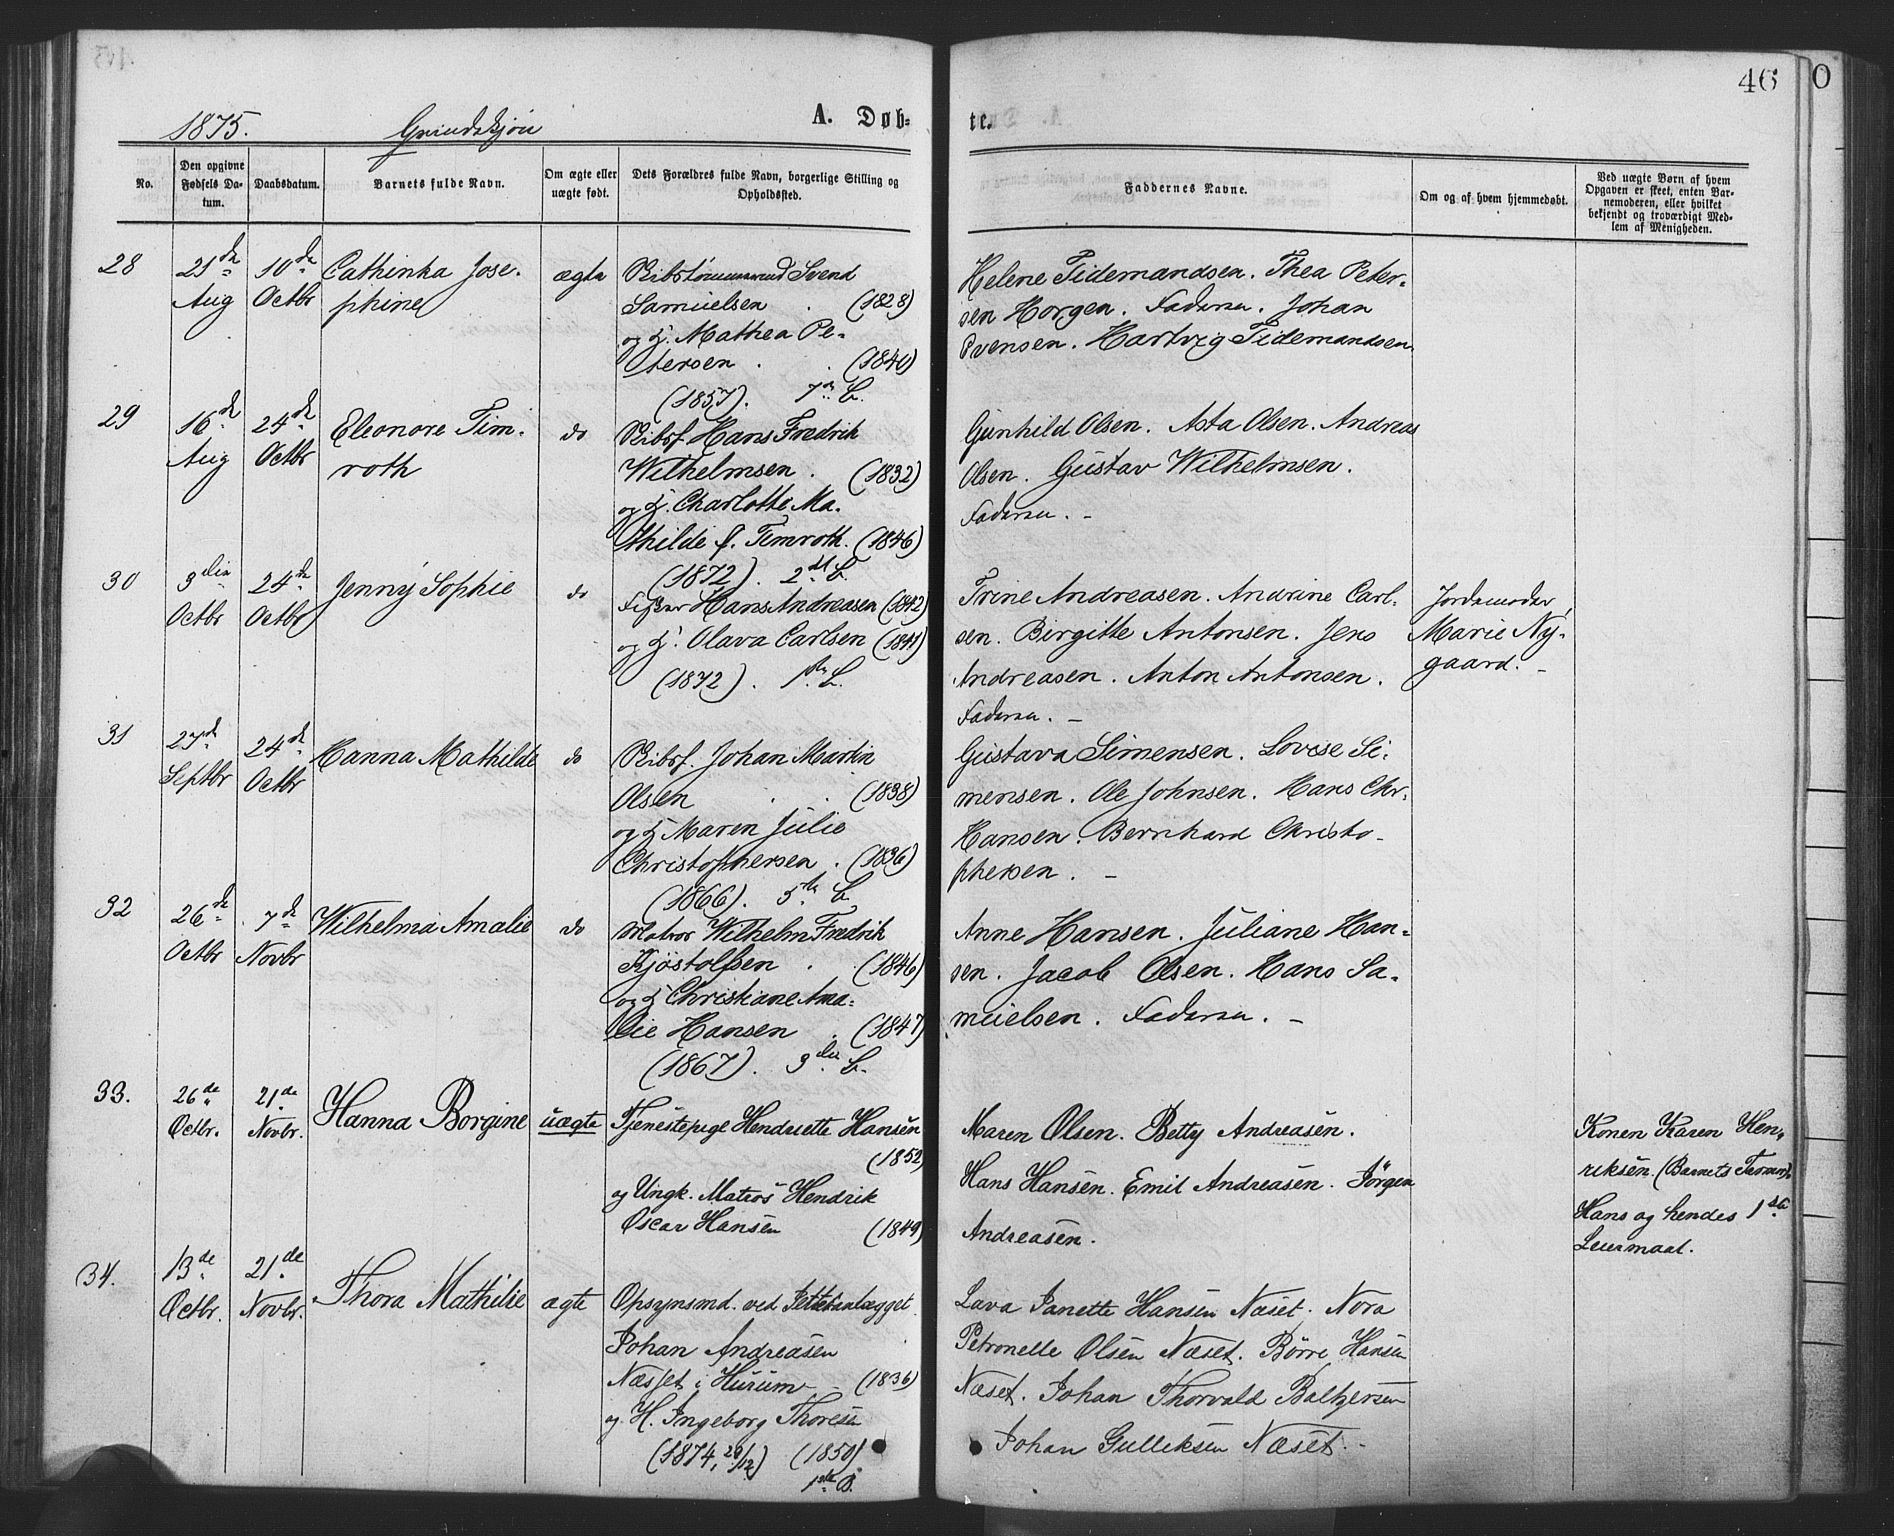 46
0
1875. Grindskjøn A. Døb-
te.
No.
Den opgivne
Fødsels Da-
tum.
Daabsdatum.
Barnets fulde Navn.
Om ægte eller
uægte født.
Dets Forældres fulde Navn, borgerlige Stilling og
Opholdssted.
Faddernes Navne.
Om og af hvem hjemmedøbt.
Ved uægte Børn af hvem
Opgaven er skeet, enten Bar-
nemoderen, eller hvilket
bekjendt og troværdigt Med-
lem af Menigheden.
28
21de
Aug
10de
Octbr
Cathinka Jose-
phine
ægte
Svend
Samuelsen . (1828)
og H. Mathea Pe-
tersen . . (1840)
(1857). 7de B.
Helene Tidemandsen. Thea Peter-
sen Horgen. Faderen. Johan
Svensen. Hartvig Tidemandsen.
29
16de
Aug
24de
Octbr
Eleonore Tim-
roth
do
Skibsf. Hans Fredrik
Wilhelmsen . (1832)
og H. Charlotte Ma-
thilde f. Timroth. (1846)
(1872). 2det B.
Gunhild Olsen. Asta Olsen. Andreas
Olsen. Gustav Wilhelmsen.
Faderen. -
30
3die
Octbr
24de
Octbr
Jenny Sophie
do
Fisker Hans Andreasen (1842)
og H. Olava Carlsen (1841)
(1872). 1ste B.
Trine Andreasen. Andrine Carl-
sen. Birgitte Antonsen. Jens
Andreasen. Anton Antonsen.
Faderen. -
Jordemoder
Marie Ny-
gaard. -
31
27de
Septbr
24de
Octbr
Hanna Mathilde
do
Skibsf. Johan Martin
Olsen . . (1838)
og H. Maren Julie
Christophersen . (1836)
(1866). 5te B.
Gustava Simensen. Lovise Si-
mensen. Ole Johnsen. Hans Chr.
Hansen. Bernhard Christo-
phersen. -
32
26de
Octbr
7de
Novbr
Wilhelma Amalie
do
Matros Wilhelm Fredrik
Kjøstolfsen . (1846)
og H. Christiane Ama-
lie Hansen . (1847)
(1867). 3die B.
Anne Hansen. Juliane Han-
sen. Jacob Olsen. Hans Sa-
muelsen. Faderen. -
33.
26de
Octbr.
21de
Novbr.
Hanna Borgine
uægte
Tjenestepige Hendriette Hansen
(1852)
og Ungk. Matros Hendrik
Oscar Hansen (1849)
Maren Olsen. Betty Andreasen.
Hans Hansen. Emil Andreasen. Jørgen
Andreasen.
Konen Karen Hen-
riksen (Barnets
Hans og hendes 1ste
Leiermaal.
34.
13de
Octbr.
21de
Novbr.
Thora Mathilie
ægte
Opsynsmd. ved
Johan Andreasen
Næsset i Hurum (1836)
og H. Ingeborg Thoresen
(1874, 29/12) (1850)
1ste B.
Lava Janette Hansen Næset. Nora
Petronelle Olsen Næset. Børre Hansen
Næset. Johan Thorvald Baltzersen
Johan Gulliksen Næset. -